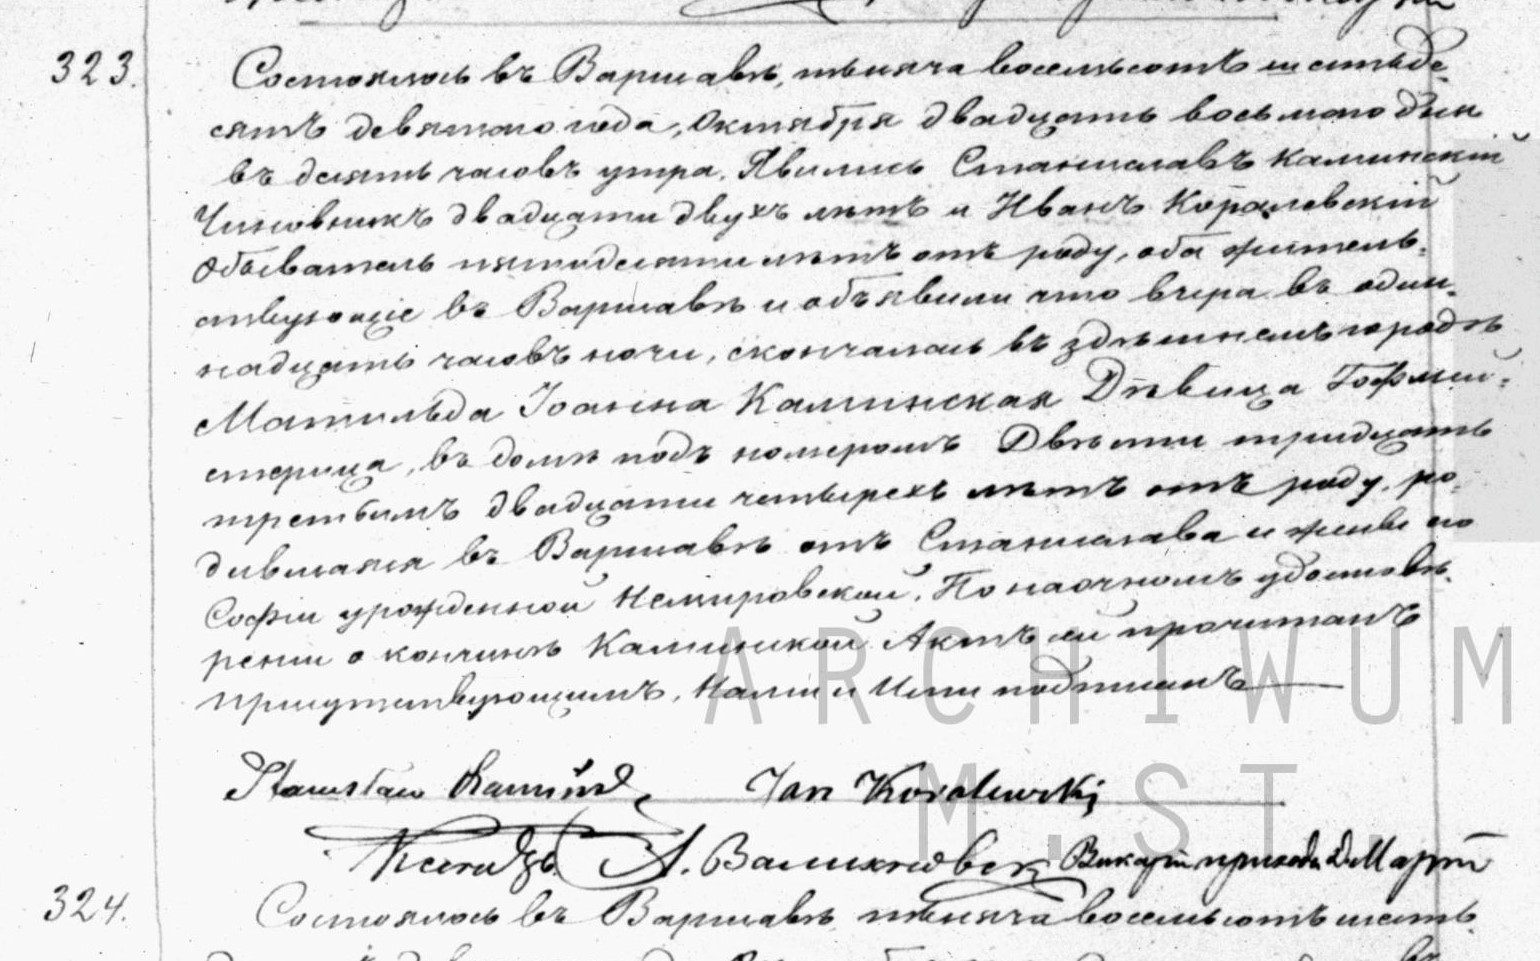 323.
Состоялось въ Варшавѣ, тысяча восемьсотъ шестьде-
сятъ девятого года, Октября двадцать восьмого дня
въ десять часовъ утра. Явились Станиславъ Каминскій
Чиновникъ двадцати двухъ лѣтъ и Иванъ Королевскій
Обыватель пятидесяти лѣтъ отъ роду, оба житель-
ствующіе въ Варшавѣ и объявили что вчера въ один-
надцать часовъ ночи, скончалась въ здѣшнемъ городѣ
Матильда Іоанна Каминская Дѣвица Гофмей-
стерица, въ домѣ подъ номеромъ Двѣсти тридцать
третьимъ двадцати четырехъ лѣтъ отъ роду, ро-
дившаяся въ Варшавѣ отъ Станислава и жены его
Софіи урожденной Немировской. По наочномъ удостовѣ-
реніи о кончинѣ Каминской Актъ сей прочитанъ
присутствующимъ, Нами и Ими подписанъ
Stanisław Kamiński Jan Korolewski
Ксендзъ А. Викарій прихода Маріи
324.
Состоялось въ Варшавѣ, тысяча восемьсотъ шесть-
ARCHIWUM
M.ST.